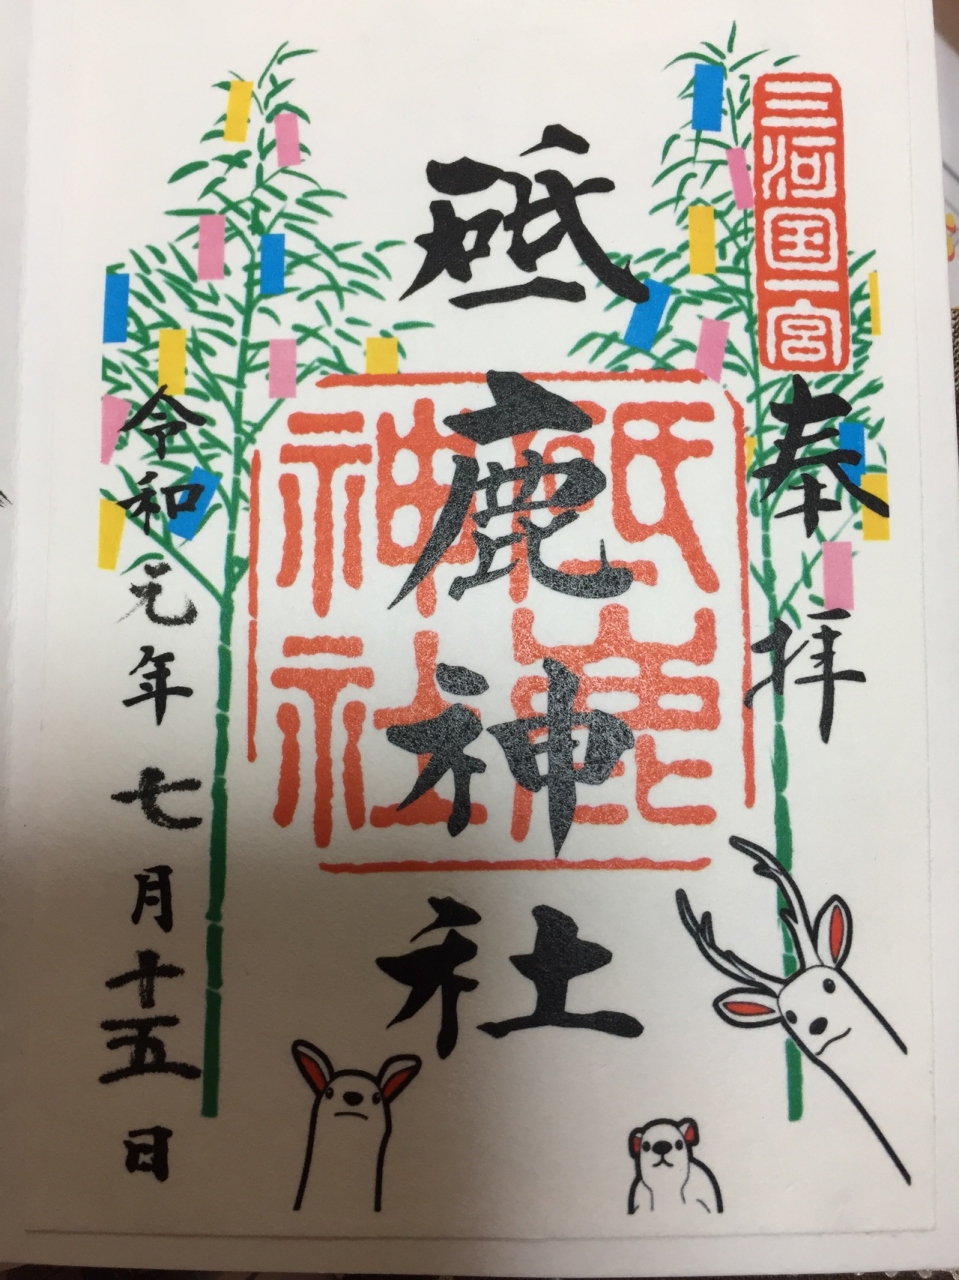 三河国一宮
奉拝
砥鹿神社
砥鹿
神社
令和元年七月十五日